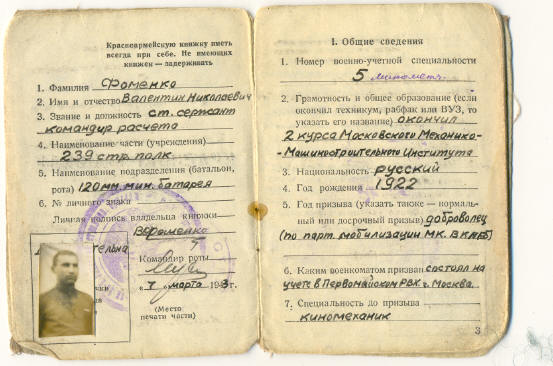 Красноармейскую книжку иметь
всегда при себе. Не имеющих
книжек — задерживать
1. Фамилия Фоменко
2. Имя и отчество Валентин Николаевич
3. Звание и должность ст. сержант
командир расчета
4. Наименование части (учреждения)
239 стр. полк.
5. Наименование подразделения (батальон,
рота) 120 мм. мин. батарея
6. № личного знака
Личная подпись владельца книжки
Командир роты
„7" марта 1943г.
(Место
печати части)
I. Общие сведения
1. Номер военно-учетной специальности
5 минометч.
2. Грамотность и общее образование (если
окончил техникум, рабфак или ВУЗ, то
указать его название) окончил
2 курса Московского Механико-
-Машиностроительного Института
3. Национальность русский
4. Год рождения 1922
5. Год призыва (указать также — нормаль-
ный или досрочный призыв) доброволец
(по парт. мобилизации МК. ВКПБ)
6. Каким военкоматом призван состоял на
учете в Первомайском РВК г. Москва.
7. Специальность до призыва
киномеханик
3